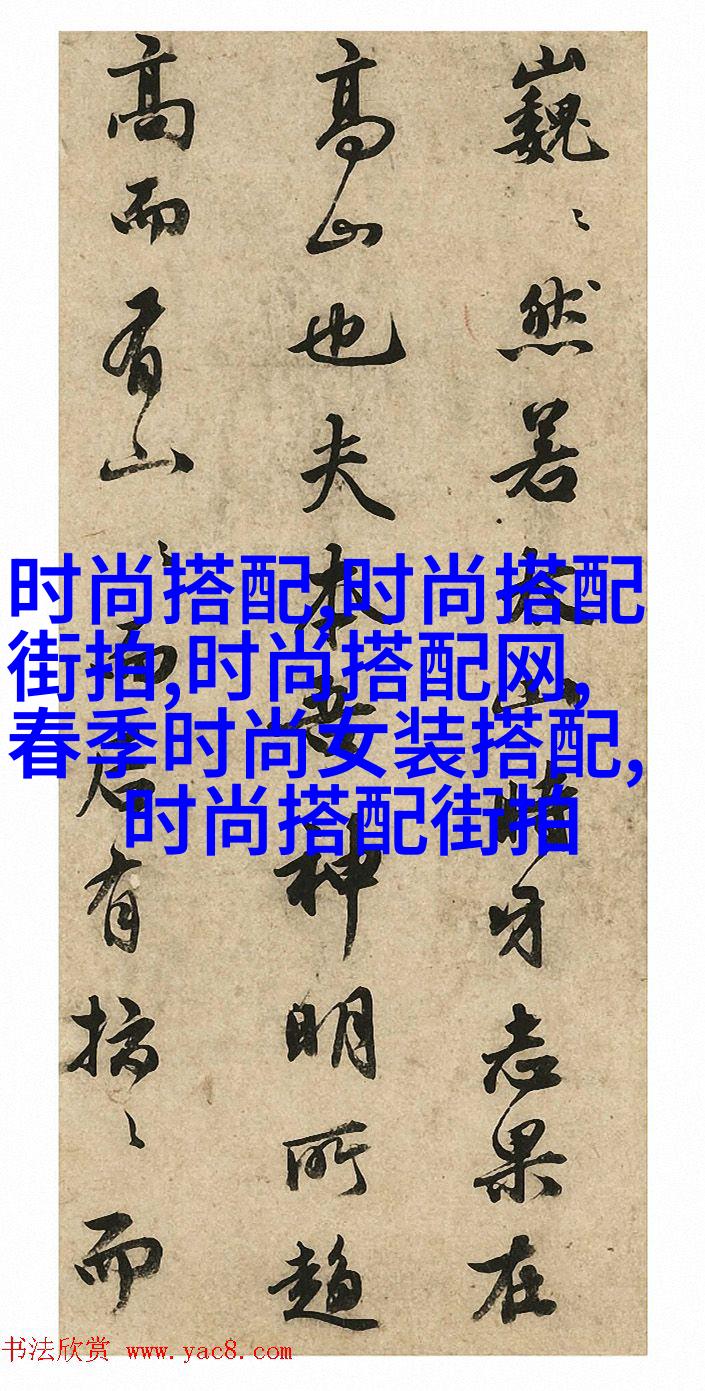 巍〻然若太山牙志果在
高山也夫本神明所趨
高而有山〻而后有〻而
时尚搭配,时尚搭配
街拍,时尚搭配网,
春季时尚女装搭配,
时尚搭配街拍
书法欣赏 www.yac8.com